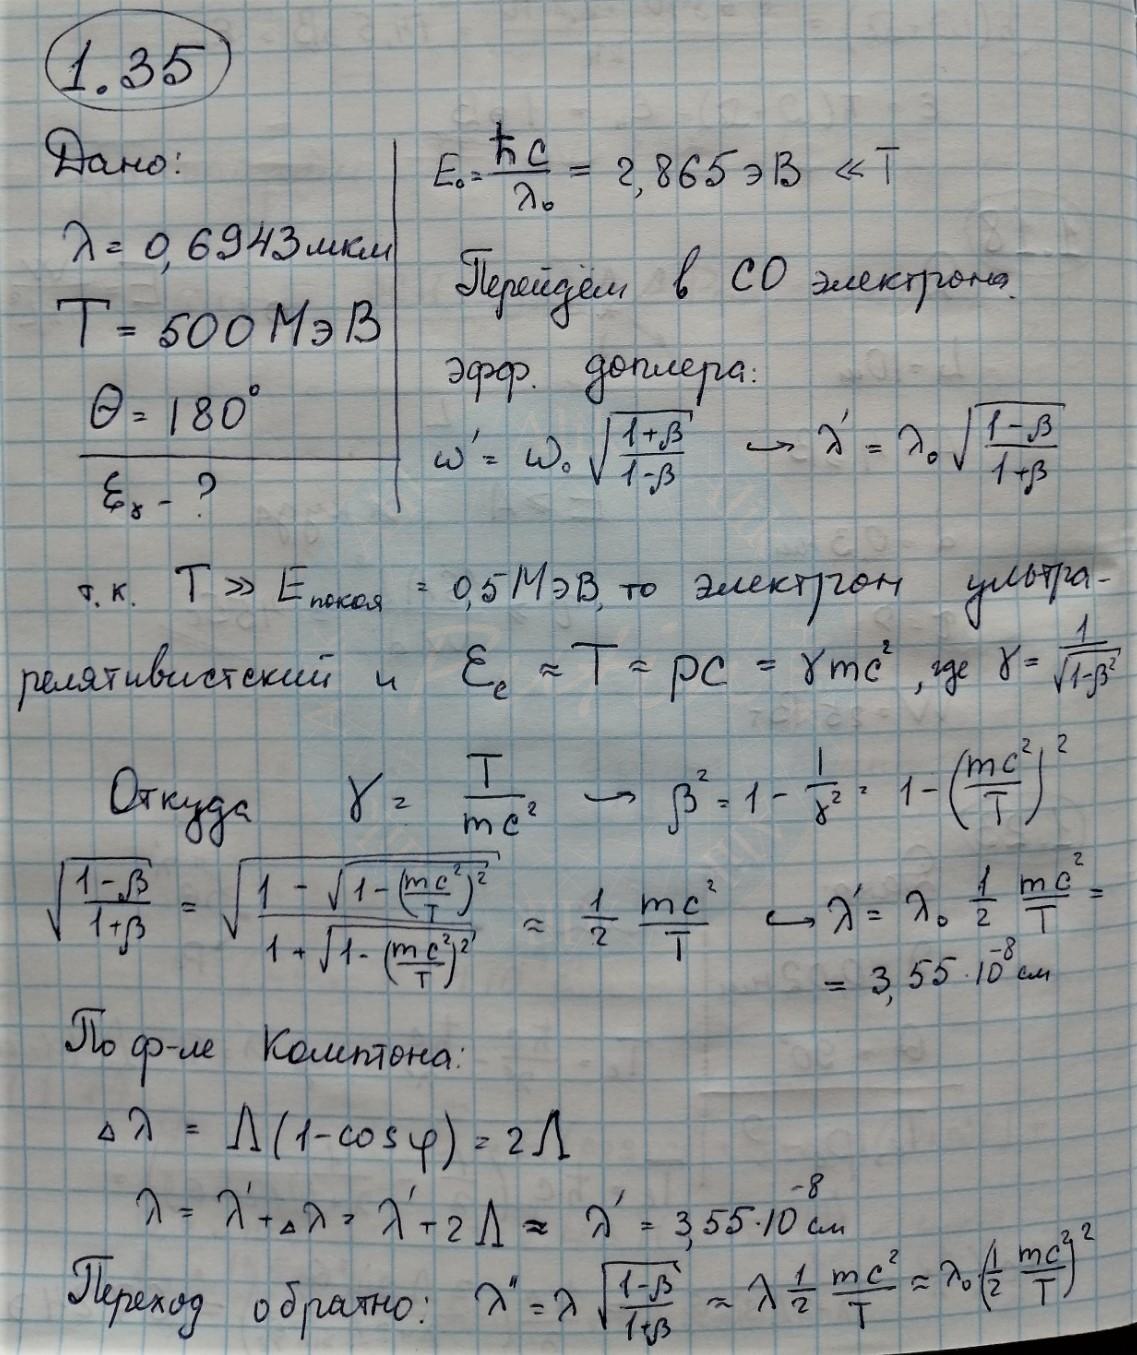 1.35
Дано:
λ = 0,6943 мкм
T = 500 МэВ
θ = 180°
ε_γ - ?
E₀ = ħc/λ₀ = 2,865 эВ ≪ T
Перейдём в СО электрона.
эфф. доплера:
ω' = ω₀ √((1+β)/(1-β)) ↪ λ' = λ₀ √((1-β)/(1+β))
т.к. T ≫ E_покоя = 0,5 МэВ, то электрон ультра-
релятивистский и ε_e ≈ T ≈ pc = γmc², где γ = 1/√(1-β²)
Откуда γ = T/mc² ↪ β² = 1 - 1/γ² = 1 - (mc²/T)²
√((1-β)/(1+β)) = √((1 - √(1-(mc²/T)²))/(1 + √(1-(mc²/T)²))) ≈ 1/2 mc²/T ↪ λ' = λ₀ 1/2 mc²/T =
= 3,55·10⁻⁸ см
По ф-ле Комптона:
Δλ = Λ(1-cosφ) = 2Λ
λ = λ' + Δλ = λ' + 2Λ ≈ λ' = 3,55·10⁻⁸ см
Переход обратно: λ" = λ √((1-β)/(1+β)) ≈ λ 1/2 mc²/T ≈ λ₀ (1/2 mc²/T)²